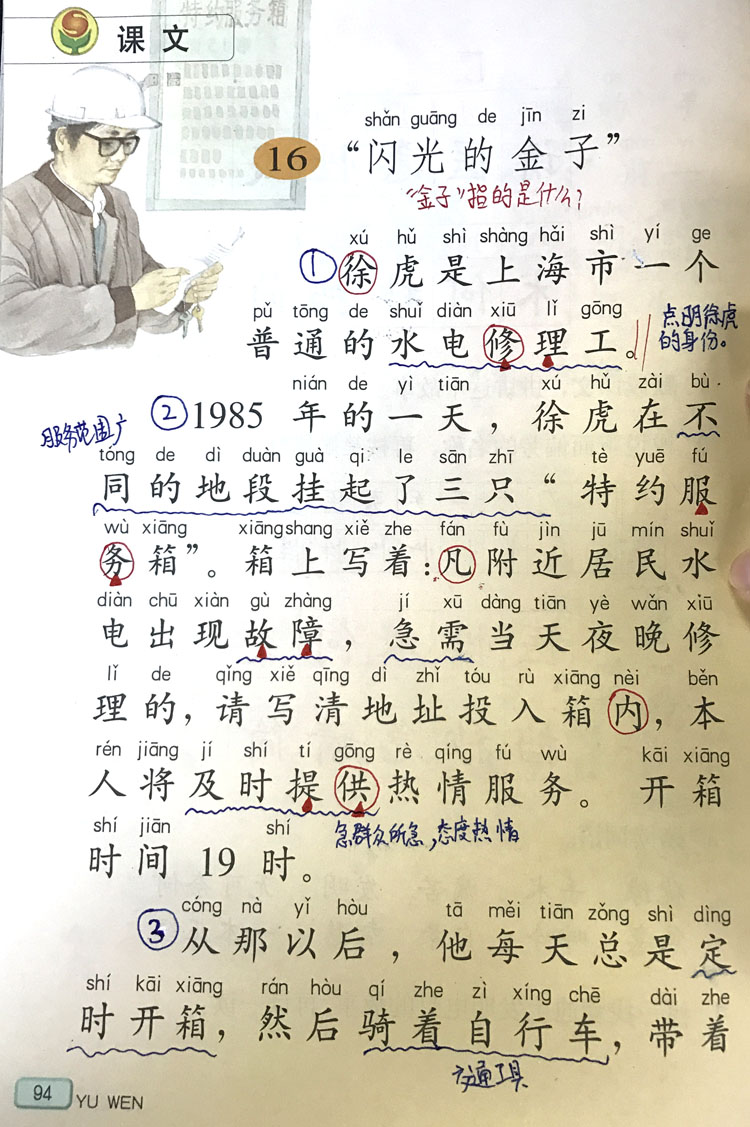 特约服务箱
课文
shǎn guāng de jīn zi
16 “闪光的金子”
“金子”指的是什么?
xú hǔ shì shàng hǎi shì yí ge
①徐虎是上海市一个
pǔ tōng de shuǐ diàn xiū lǐ gōng
普通的水电修理工。
点明徐虎
的身份。
nián de yì tiān xú hǔ zài bù
②1985 年的一天，徐虎在不
服务范围广
tóng de dì duàn guà qi le sān zhī tè yuē fú
同的地段挂起了三只“特约服
wù xiāng xiāngshang xiě zhe fán fù jìn jū mín shuǐ
务箱”。箱上写着：凡附近居民水
diàn chū xiàn gù zhàng jí xū dàng tiān yè wǎn xiū
电出现故障，急需当天夜晚修
lǐ de qǐng xiě qīng dì zhǐ tóu rù xiāng nèi běn
理的，请写清地址投入箱内，本
rén jiāng jí shí tí gōng rè qíng fú wù kāi xiāng
人将及时提供热情服务。开箱
急群众所急，态度热情
shí jiān shí
时间 19 时。
cóng nà yǐ hòu tā měi tiān zǒng shì dìng
③从那以后，他每天总是定
shí kāi xiāng rán hòu qí zhe zì xíng chē dài zhe
时开箱，然后骑着自行车，带着
交通工具
94 YU WEN